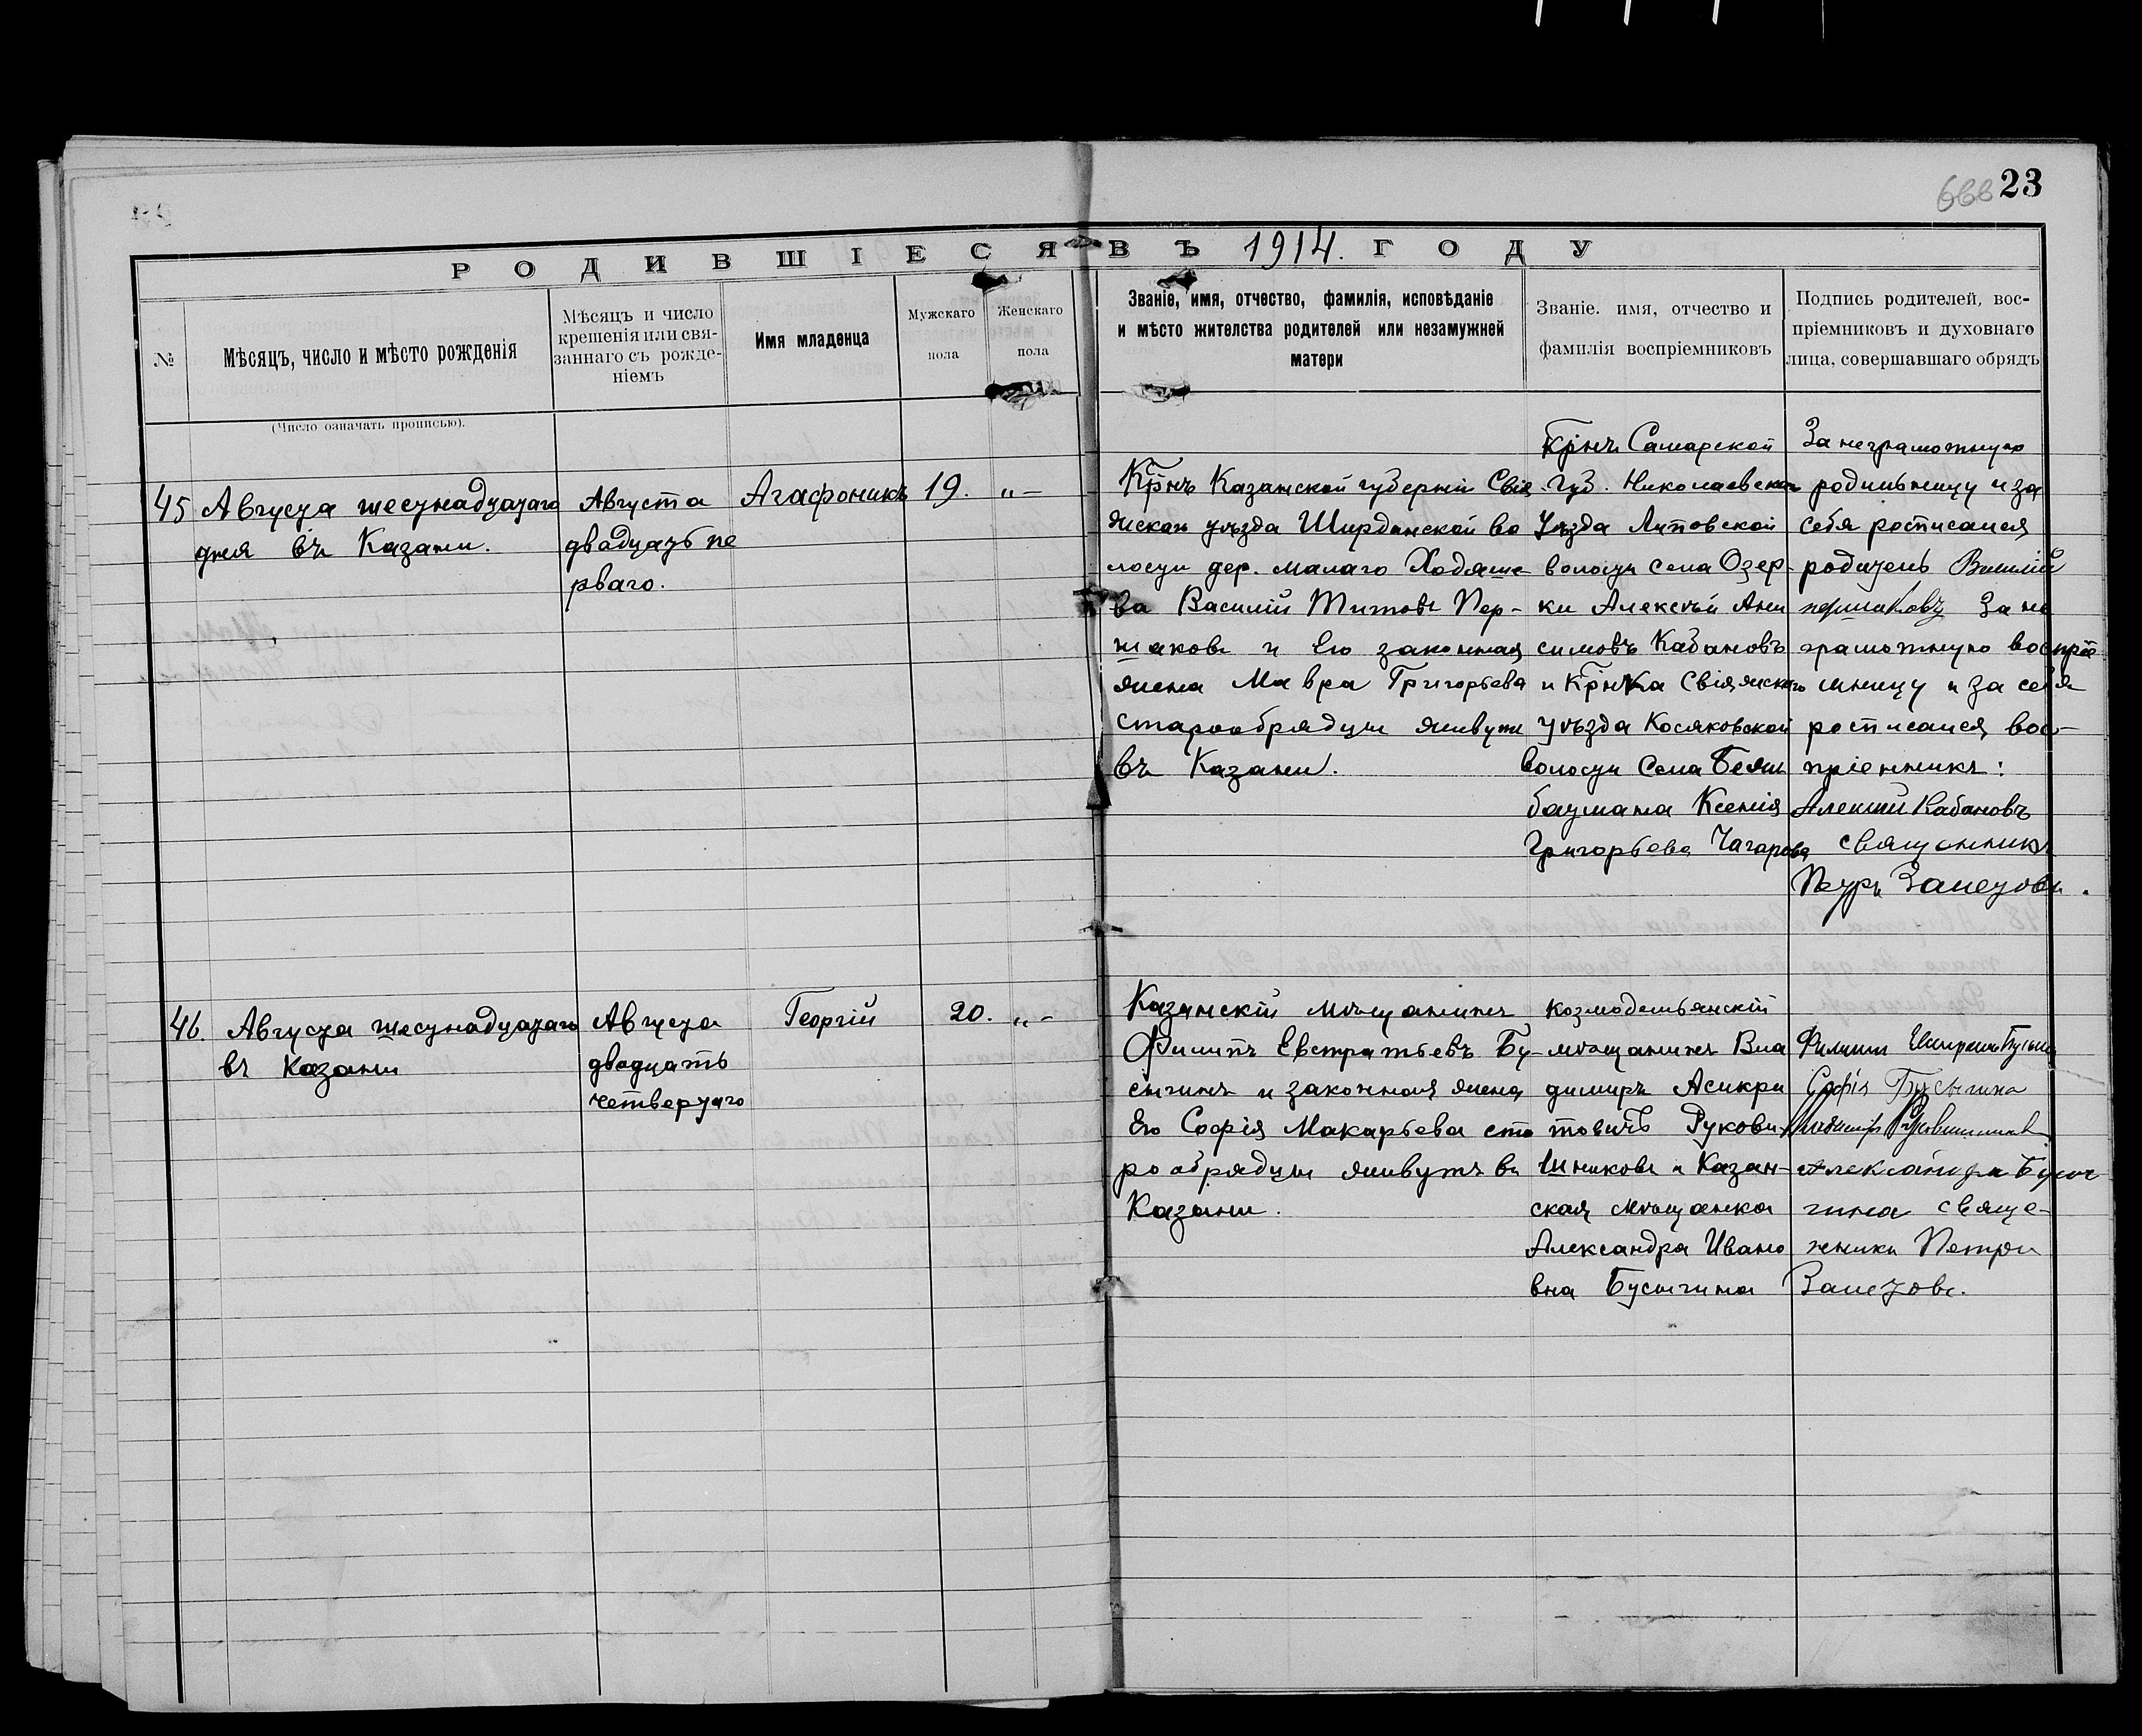 23
РОДИВШІЕСЯ ВЪ 1914. ГОДУ
№
Мѣсяцъ, число и мѣсто рожденія
(Число означать прописью).
Мѣсяцъ и число
крещенія или свя-
заннаго съ рожде-
ніемъ
Имя младенца
Мужскаго
пола
Женскаго
пола
Званіе, имя, отчество, фамилія, исповѣданіе
и мѣсто жителства родителей или незамужней
матери
Званіе. имя, отчество и
фамилія воспріемниковъ
Подпись родителей, вос-
пріемниковъ и духовнаго
лица, совершавшаго обрядъ
45
Августа шестнадцатаго
дня въ Казани.
Августа
двадцать пе
рваго.
Агафоникъ
19.
„ –
Крнъ Казанской губерніи Свія
жскаго уѣзда Ширданской во
лости дер. малаго Ходяше-
ва Василій Титовъ Пер-
шаковъ и Его законная
жена Мавра Григорьева
старообрядцы живутъ
въ Казани.
Крнъ Самарской
Губ. Николаевскаго
Уѣзда Липовской
волости села Озер-
ки Алексѣй Ани
симовъ Кабановъ
и Крнка Свіяжскаго
уѣзда Косяковской
волости Села Беки
батмана Ксенія
Григорьева Чагарова
За неграмотную
родильницу и за
себя росписался
родитель Василій
першаковъ За не
грамотную воспріе
мницу и за себя
росписался вос-
пріемникъ:
Алексей Кабановъ
священникъ
Петръ Залетовъ.
46.
Августа шестнадцатаго
въ Казани
Августа
двадцать
четвертаго
Георгій
20.
„ –
Казанскій мѣщанинъ
Филипъ Евстратьевъ Бу-
сыгинъ и законная жена
Его Софія Макарьева ста
рообрядцы живутъ въ
Казани.
Козмодемьянскій
мѣщанинъ Вла
димиръ Асикри
товичъ Рукови-
шниковъ и Казан-
ская мѣщанка
Александра Ивано
вна Бусыгина
Филипп
Софія Бусыгина
Александра Бусы
гина свяще-
нникъ Петръ
Залетовъ.